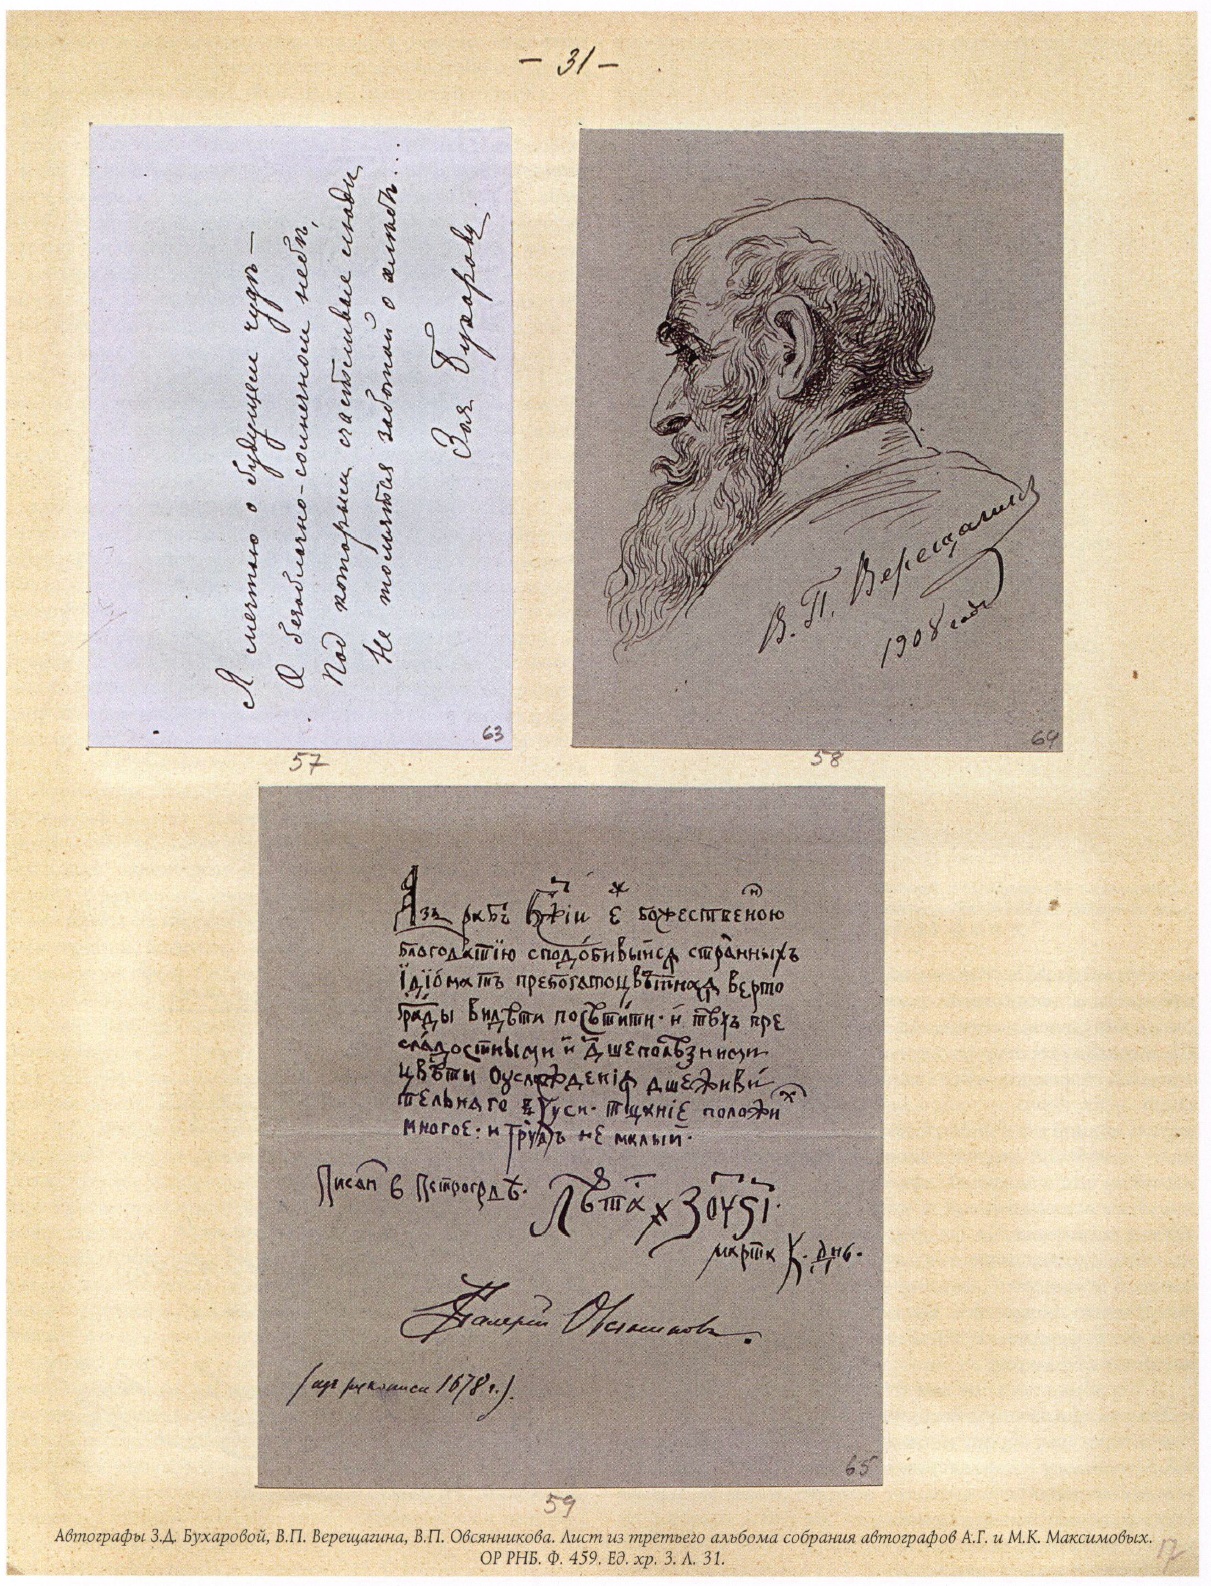 – 31 –
Я мечтаю о будущем чуде —
О безоблачно-солнечном небе,
Под которым счастливые люди
Не томятся заботой о хлебе...
Зоя Бухарова.
63
57
В. П. Верещагин
1908 года
64
58
Азъ рабъ Бжіи божественою
благодатїю сподобивыйся странныхъ
преботатоцвѣтная верто
грады видѣти посѣтити и тѣхъ пре
сладостными и дшеполѣзними
цвѣты оуслажденія дшеживи
тельнаго вкуси тщаніе положи
многое и трудъ не малый
Писан в Петроградѣ. Лѣта
марта К. днь.
Валерій Овсянниковъ.
(изъ рукописи 1678 г.).
65
59
Автографы З.Д. Бухаровой, В.П. Верещагина, В.П. Овсянникова. Лист из третьего альбома собрания автографов А.Г. и М.К. Максимовых.
ОР РНБ. Ф. 459. Ед. хр. 3. Л. 31.
17